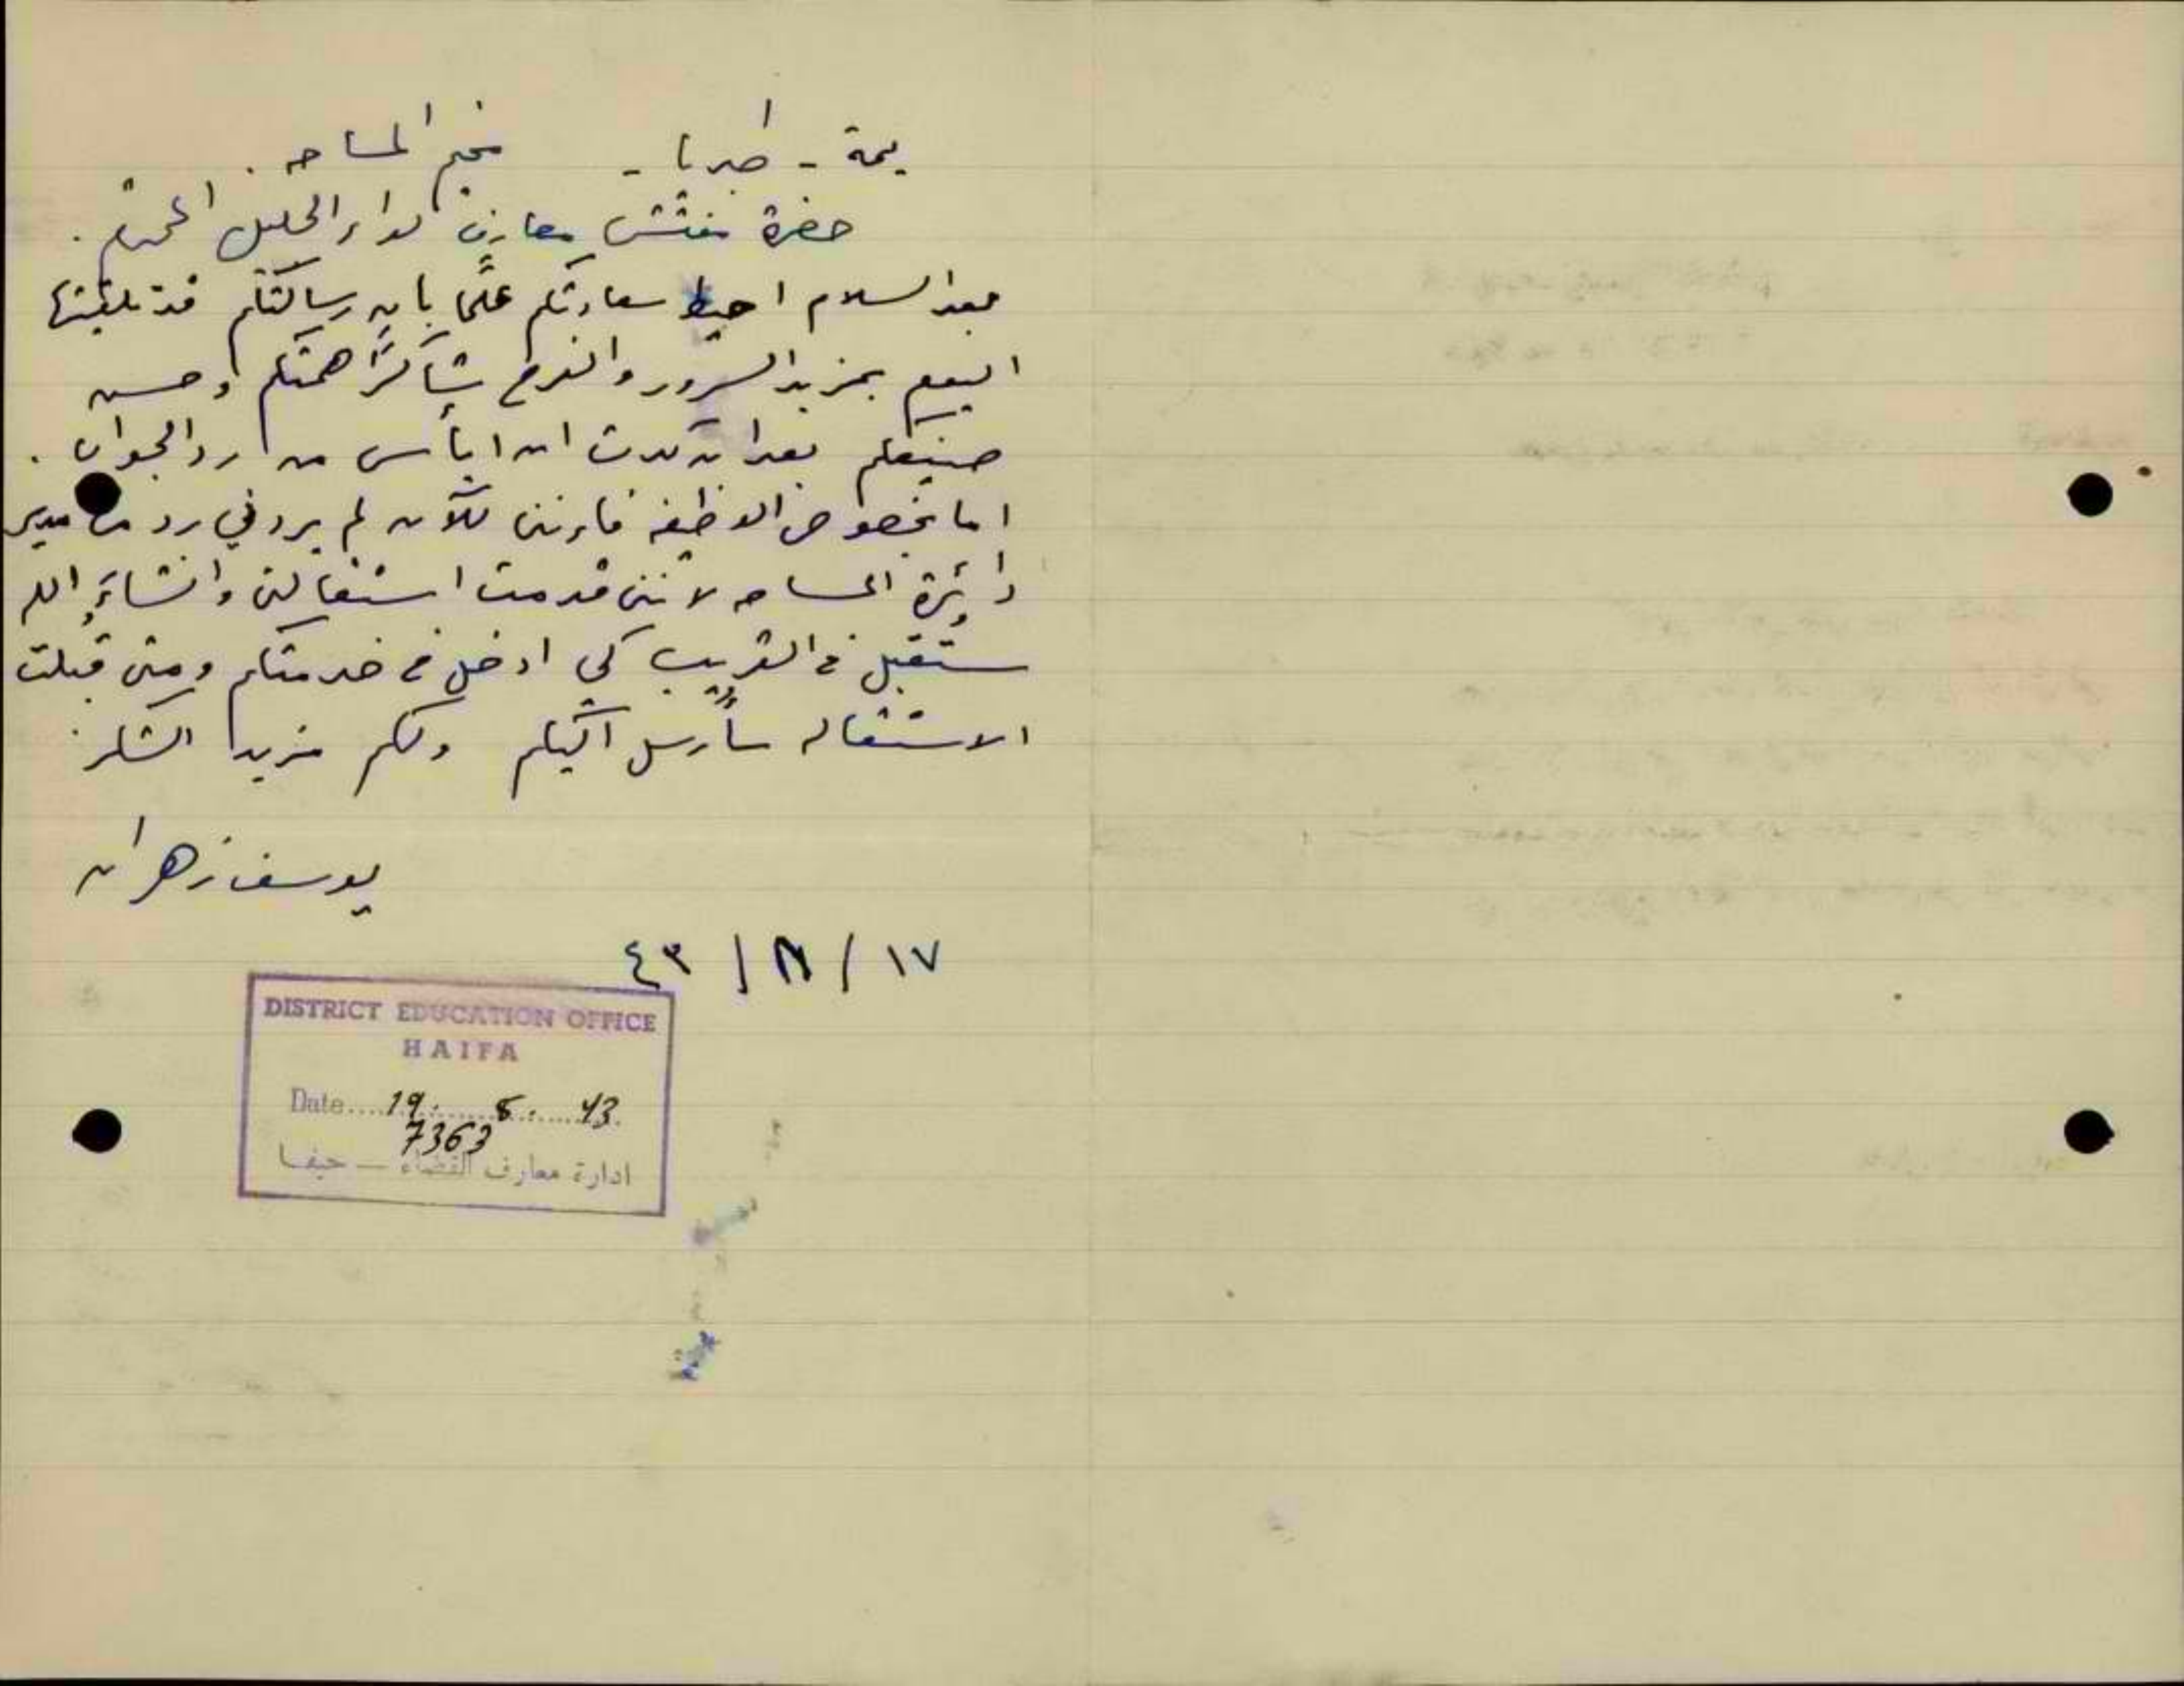 يمة - طبريا - مخيم المساحه .
حضرة مفتش معارف لواء الجليل المحترم .
بعد السلام احيط سعادتكم علمًا بان رسالتكم قد تلقيتها
اليوم بمزيد السرور والفرح شاكرًا همتكم وحسن
صنيعكم بعد ان كدت ان ايأس من رد الجواب .
اما بخصوص الوظيفه فإنني للآن لم يردني رد من مدير
دائرة المساحه لانني قدمت استقالتي وانشاء الله
ستقبل في القريب كي ادخل في خدمتكم ومتى قبلت
الاستقاله سأرسل اليكم ولكم مزيد الشكر
يوسف زهران
١٧ / ٨ / ٤٣
DISTRICT EDUCATION OFFICE
HAIFA
Date.... 19. 8. 43.
7363
ادارة معارف القضاء — حيفا